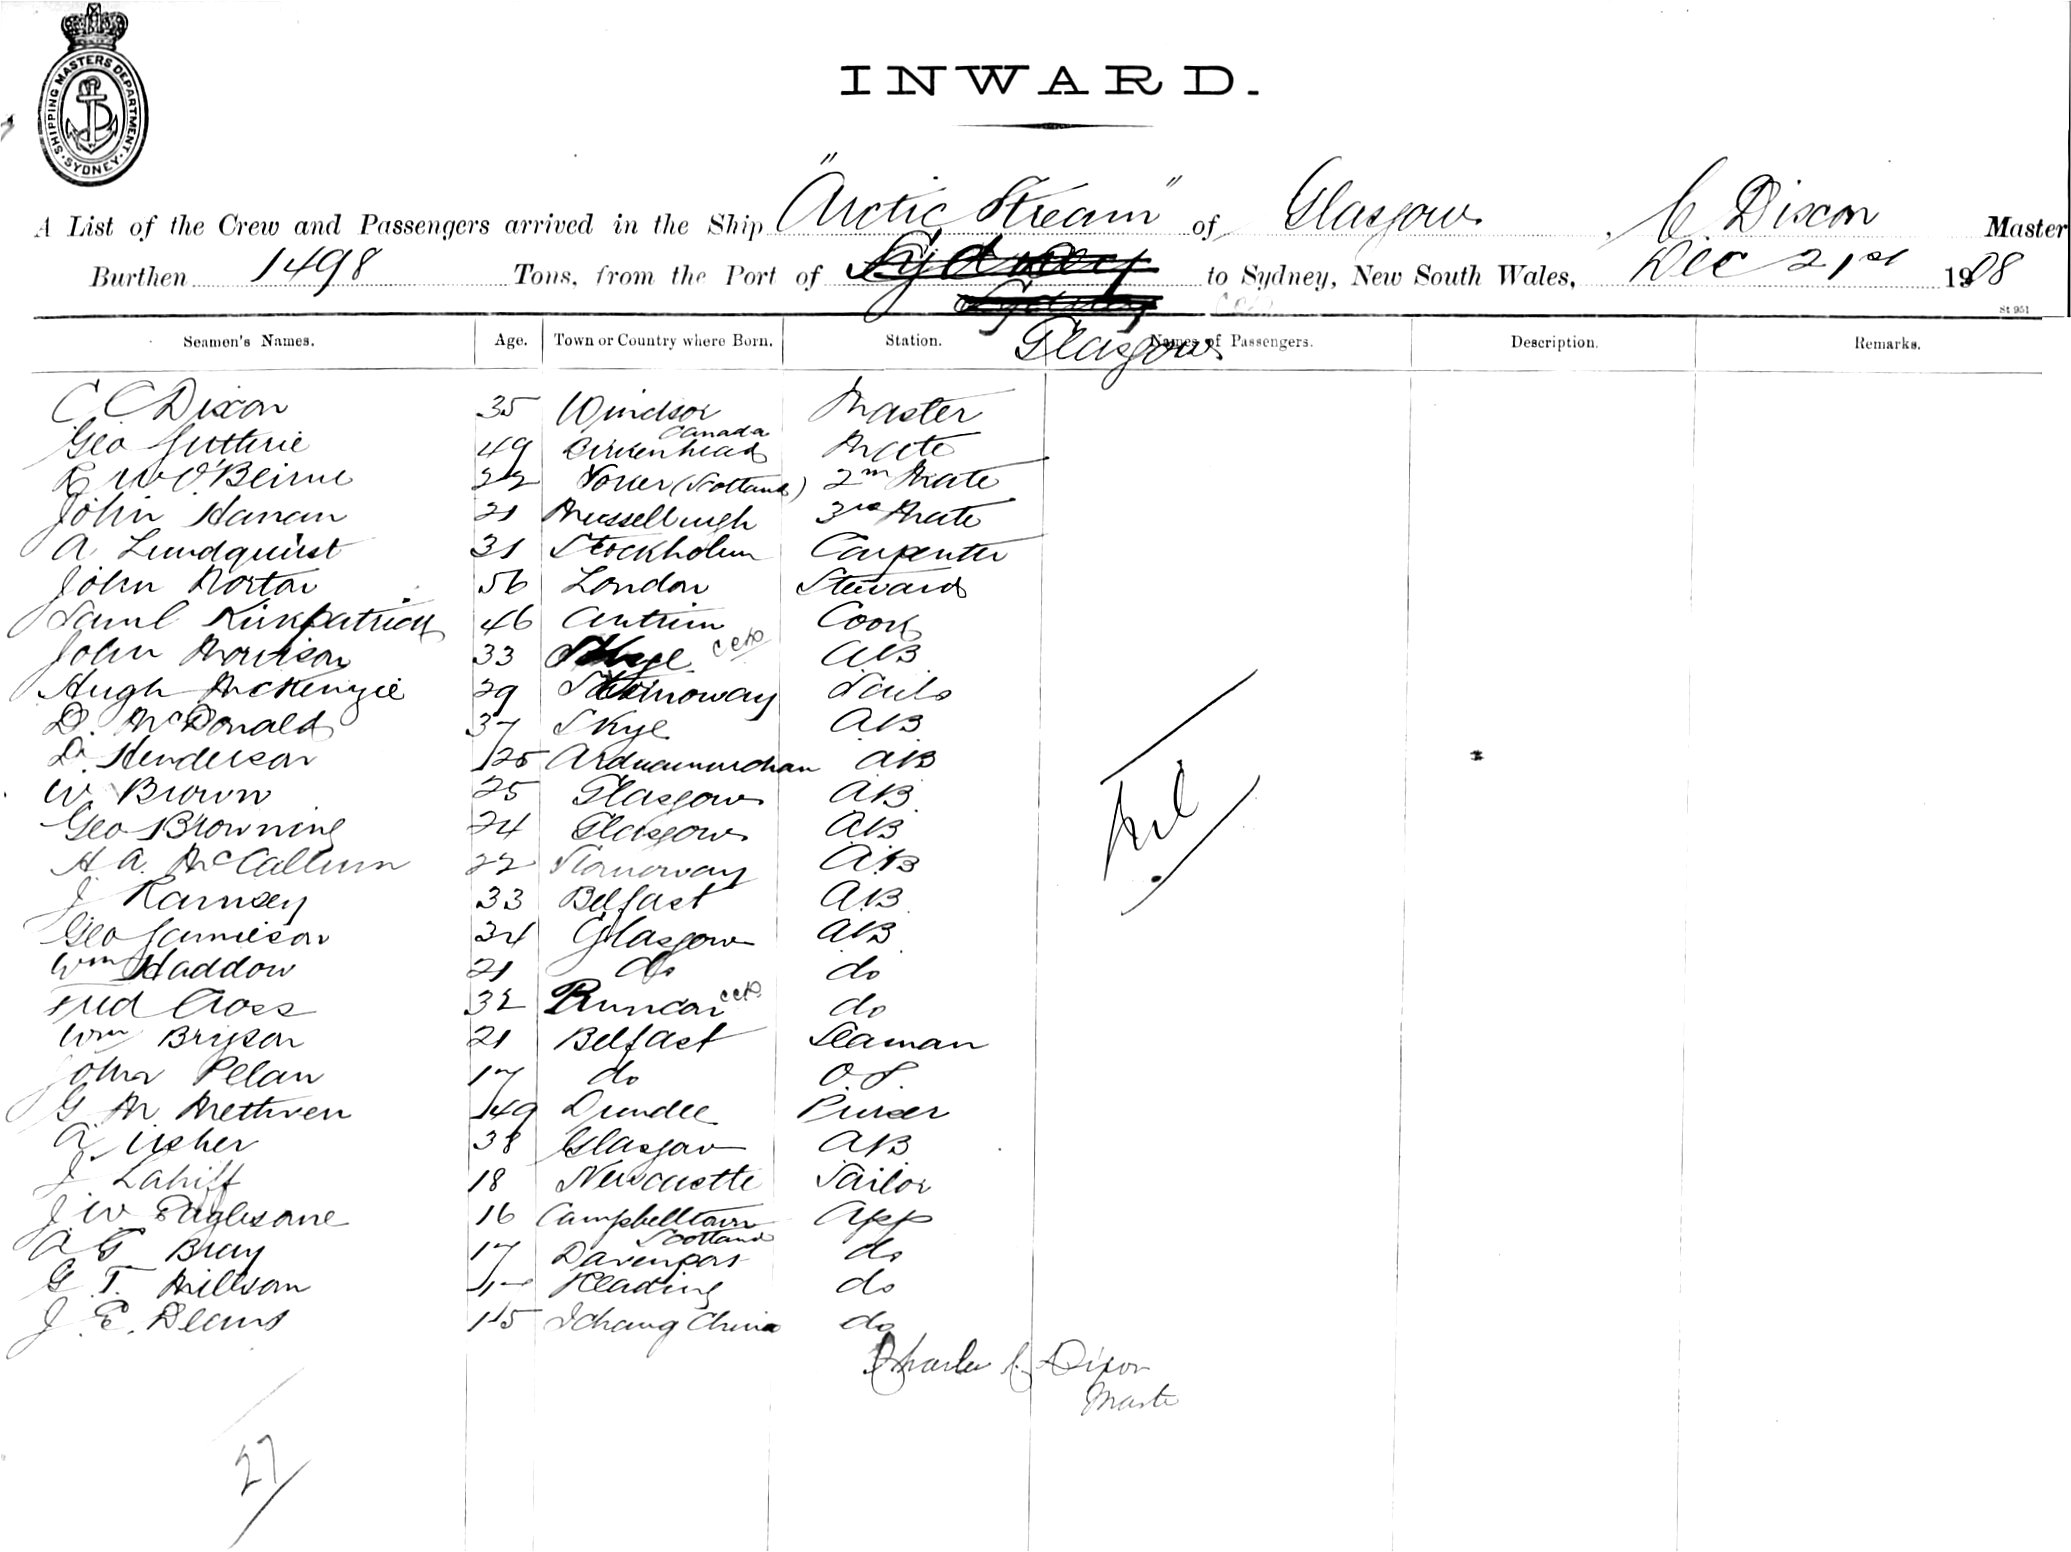 SHIPPING MASTERS DEPARTMENT. SYDNEY
INWARD.
A List of the Crew and Passengers arrived in the Ship "Arctic Stream" of Glasgow, C Dixon Master
Burthen 1498 Tons, from the Port of Sydney to Sydney, New South Wales, Dec 21st 1908
Glasgow
St 951
Seamen's Names. Age. Town or Country where Born. Station. Names of Passengers. Description. Remarks.
C C Dixon 35 Windsor Canada Master
Geo Guthrie 49 Birkenhead Mate
R W O'Beirne 22 (Scotland) 2nd Mate
John Hanan 21 Musselburgh 3rd Mate
A Lundquist 31 Stockholm Carpenter
John Norton 56 London Steward
Saml Kirkpatrick 46 Antrim Cook
John Morrison 33 Skye AB
Hugh McKenzie 29 Stornoway Sails
D. McDonald 37 Skye AB
D. Henderson 25 Ardnamurchan AB
W Brown 25 Glasgow AB
Geo Browning 24 Glasgow AB
H A. McCallum 22 Stornoway AB
J Ramsey 33 Belfast AB
Geo Jamieson 34 Glasgow AB
Wm Haddow 21 do do
Fred Cross 32 Runcon do
Wm Bryson 21 Belfast Seaman
John Pelan 17 do O.S.
G M Methven 49 Dundee Purser
A. Usher 38 Glasgow AB
J Lahiff 18 Newcastle Sailor
J W Eaglesome 16 Campbelltown Scotland App
A G Bray 17 Davenport do
G. T. Millson 17 Reading do
J. E. Deans 15 Ichang China do
Nil
Charles C. Dixon
Master
27